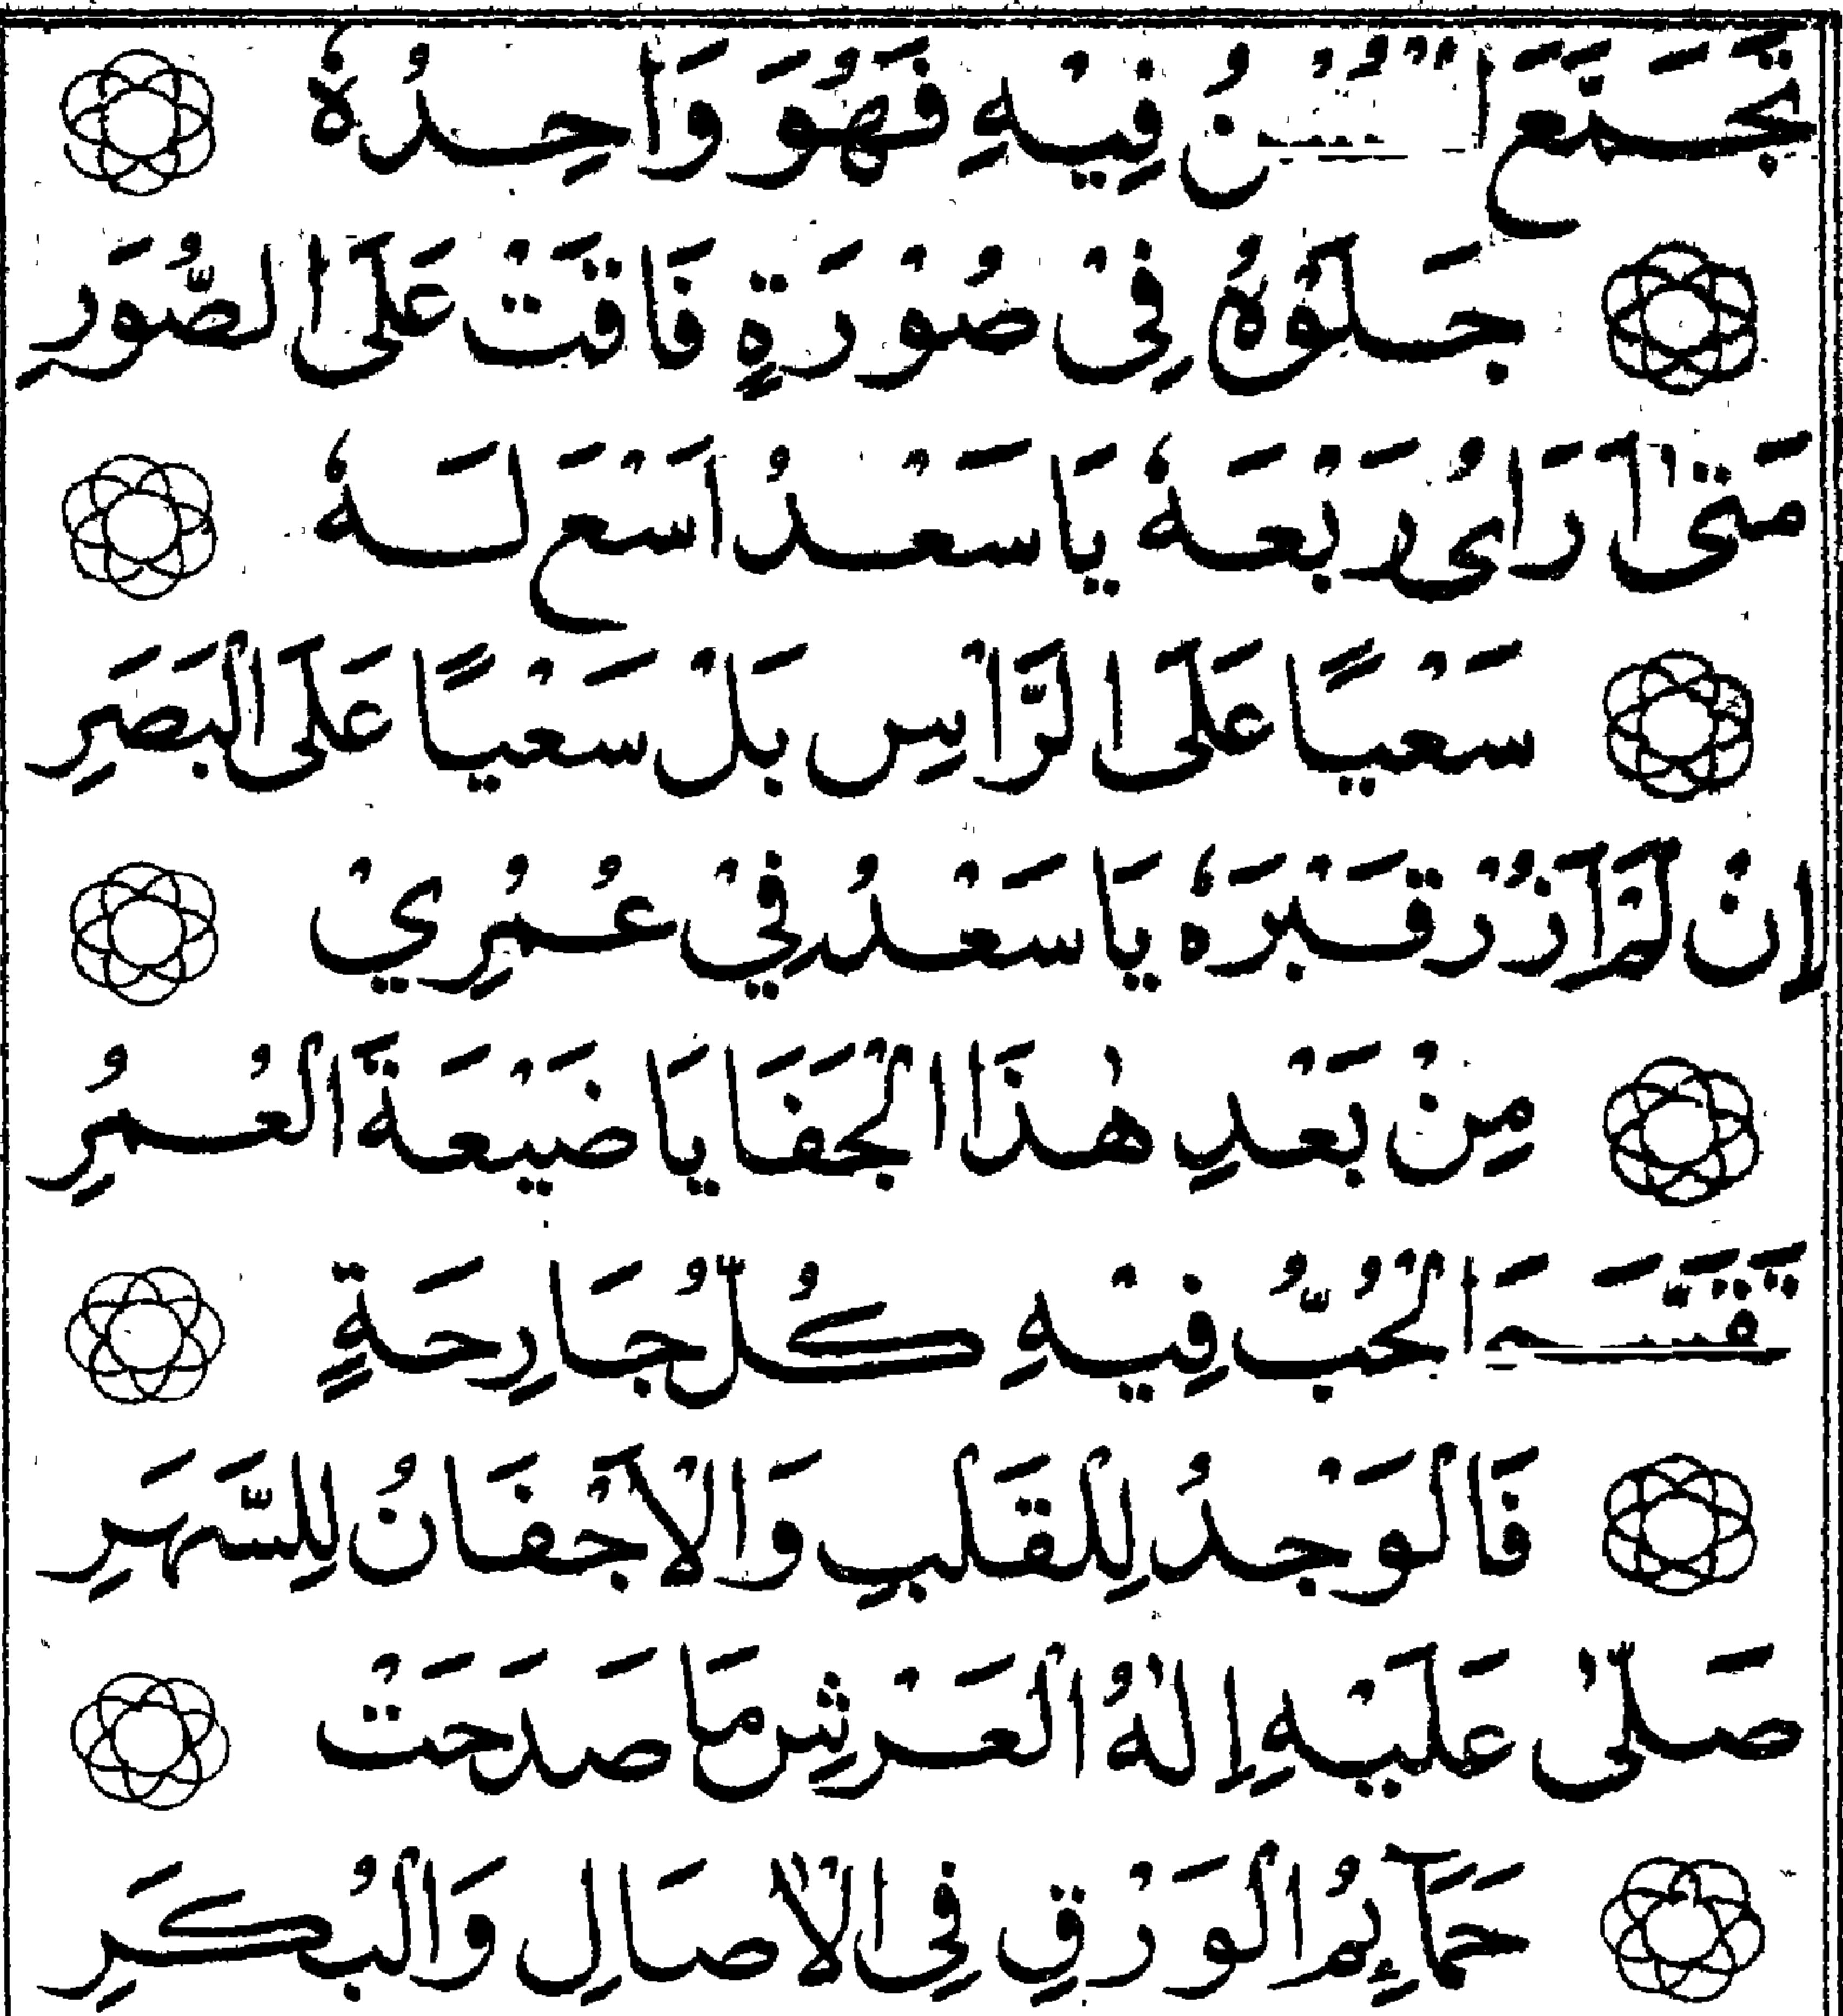 تَجَمَّعَ فِيْهِ فَهُوَ وَاحِدُهٗ
جَلَوْهُ فِىْ صُوْرَةٍ فَاقَتْ عَلَى الصُّوَرِ
مَتٰى اَرَاىُ رَبْعَهٗ يَا سَعْدُ اَسْعَ لَهٗ
سَعْيًا عَلَى الرَّاْسِ بَلْ سَعْيًا عَلَى الْبَصَرِ
اِنْ لَمْ اَزُرْ قَبْرَهٗ يَا سَعْدُ فِيْ عُمُرِيْ
مِنْ بَعْدِ هٰذَا الْجَفَا يَا ضَيْعَةَ الْعُمُرِ
تَقَسَّمَ الْحُبُّ فِيْهِ كُلُّ جَارِحَةٍ
فَالْوَجْدُ لِلْقَلْبِ وَالْاَجْفَانُ لِلسَّهَرِ
صَلّٰى عَلَيْهِ اِلٰهُ الْعَرْشِ مَا صَدَحَتْ
حَمَآئِمُ الْوَرْقِ فِى الْاٰصَالِ وَالْبُكَرِ